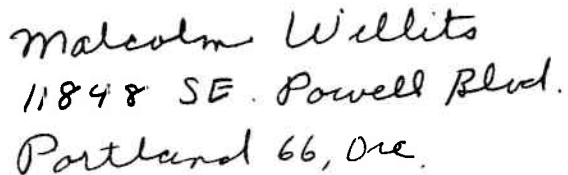 Malcolm Willits
11848 SE. Powell Blvd.
Portland 66, Ore.